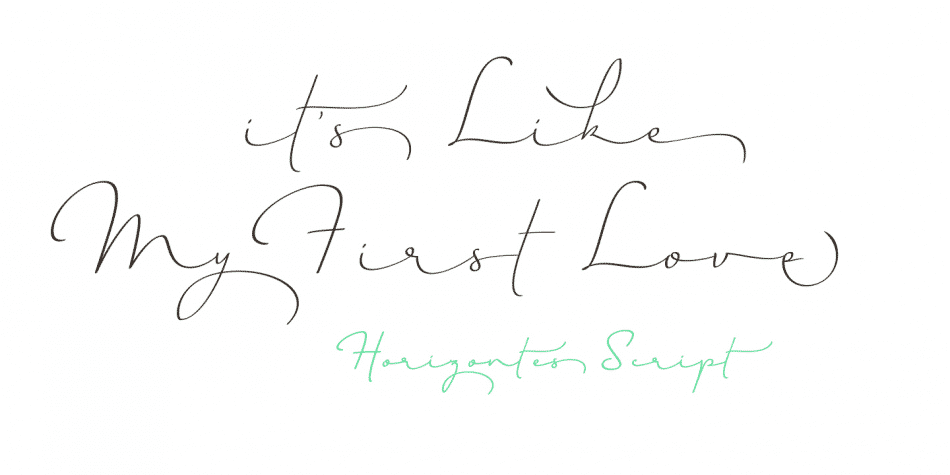 it's Like
My First Love
Horizontes Script